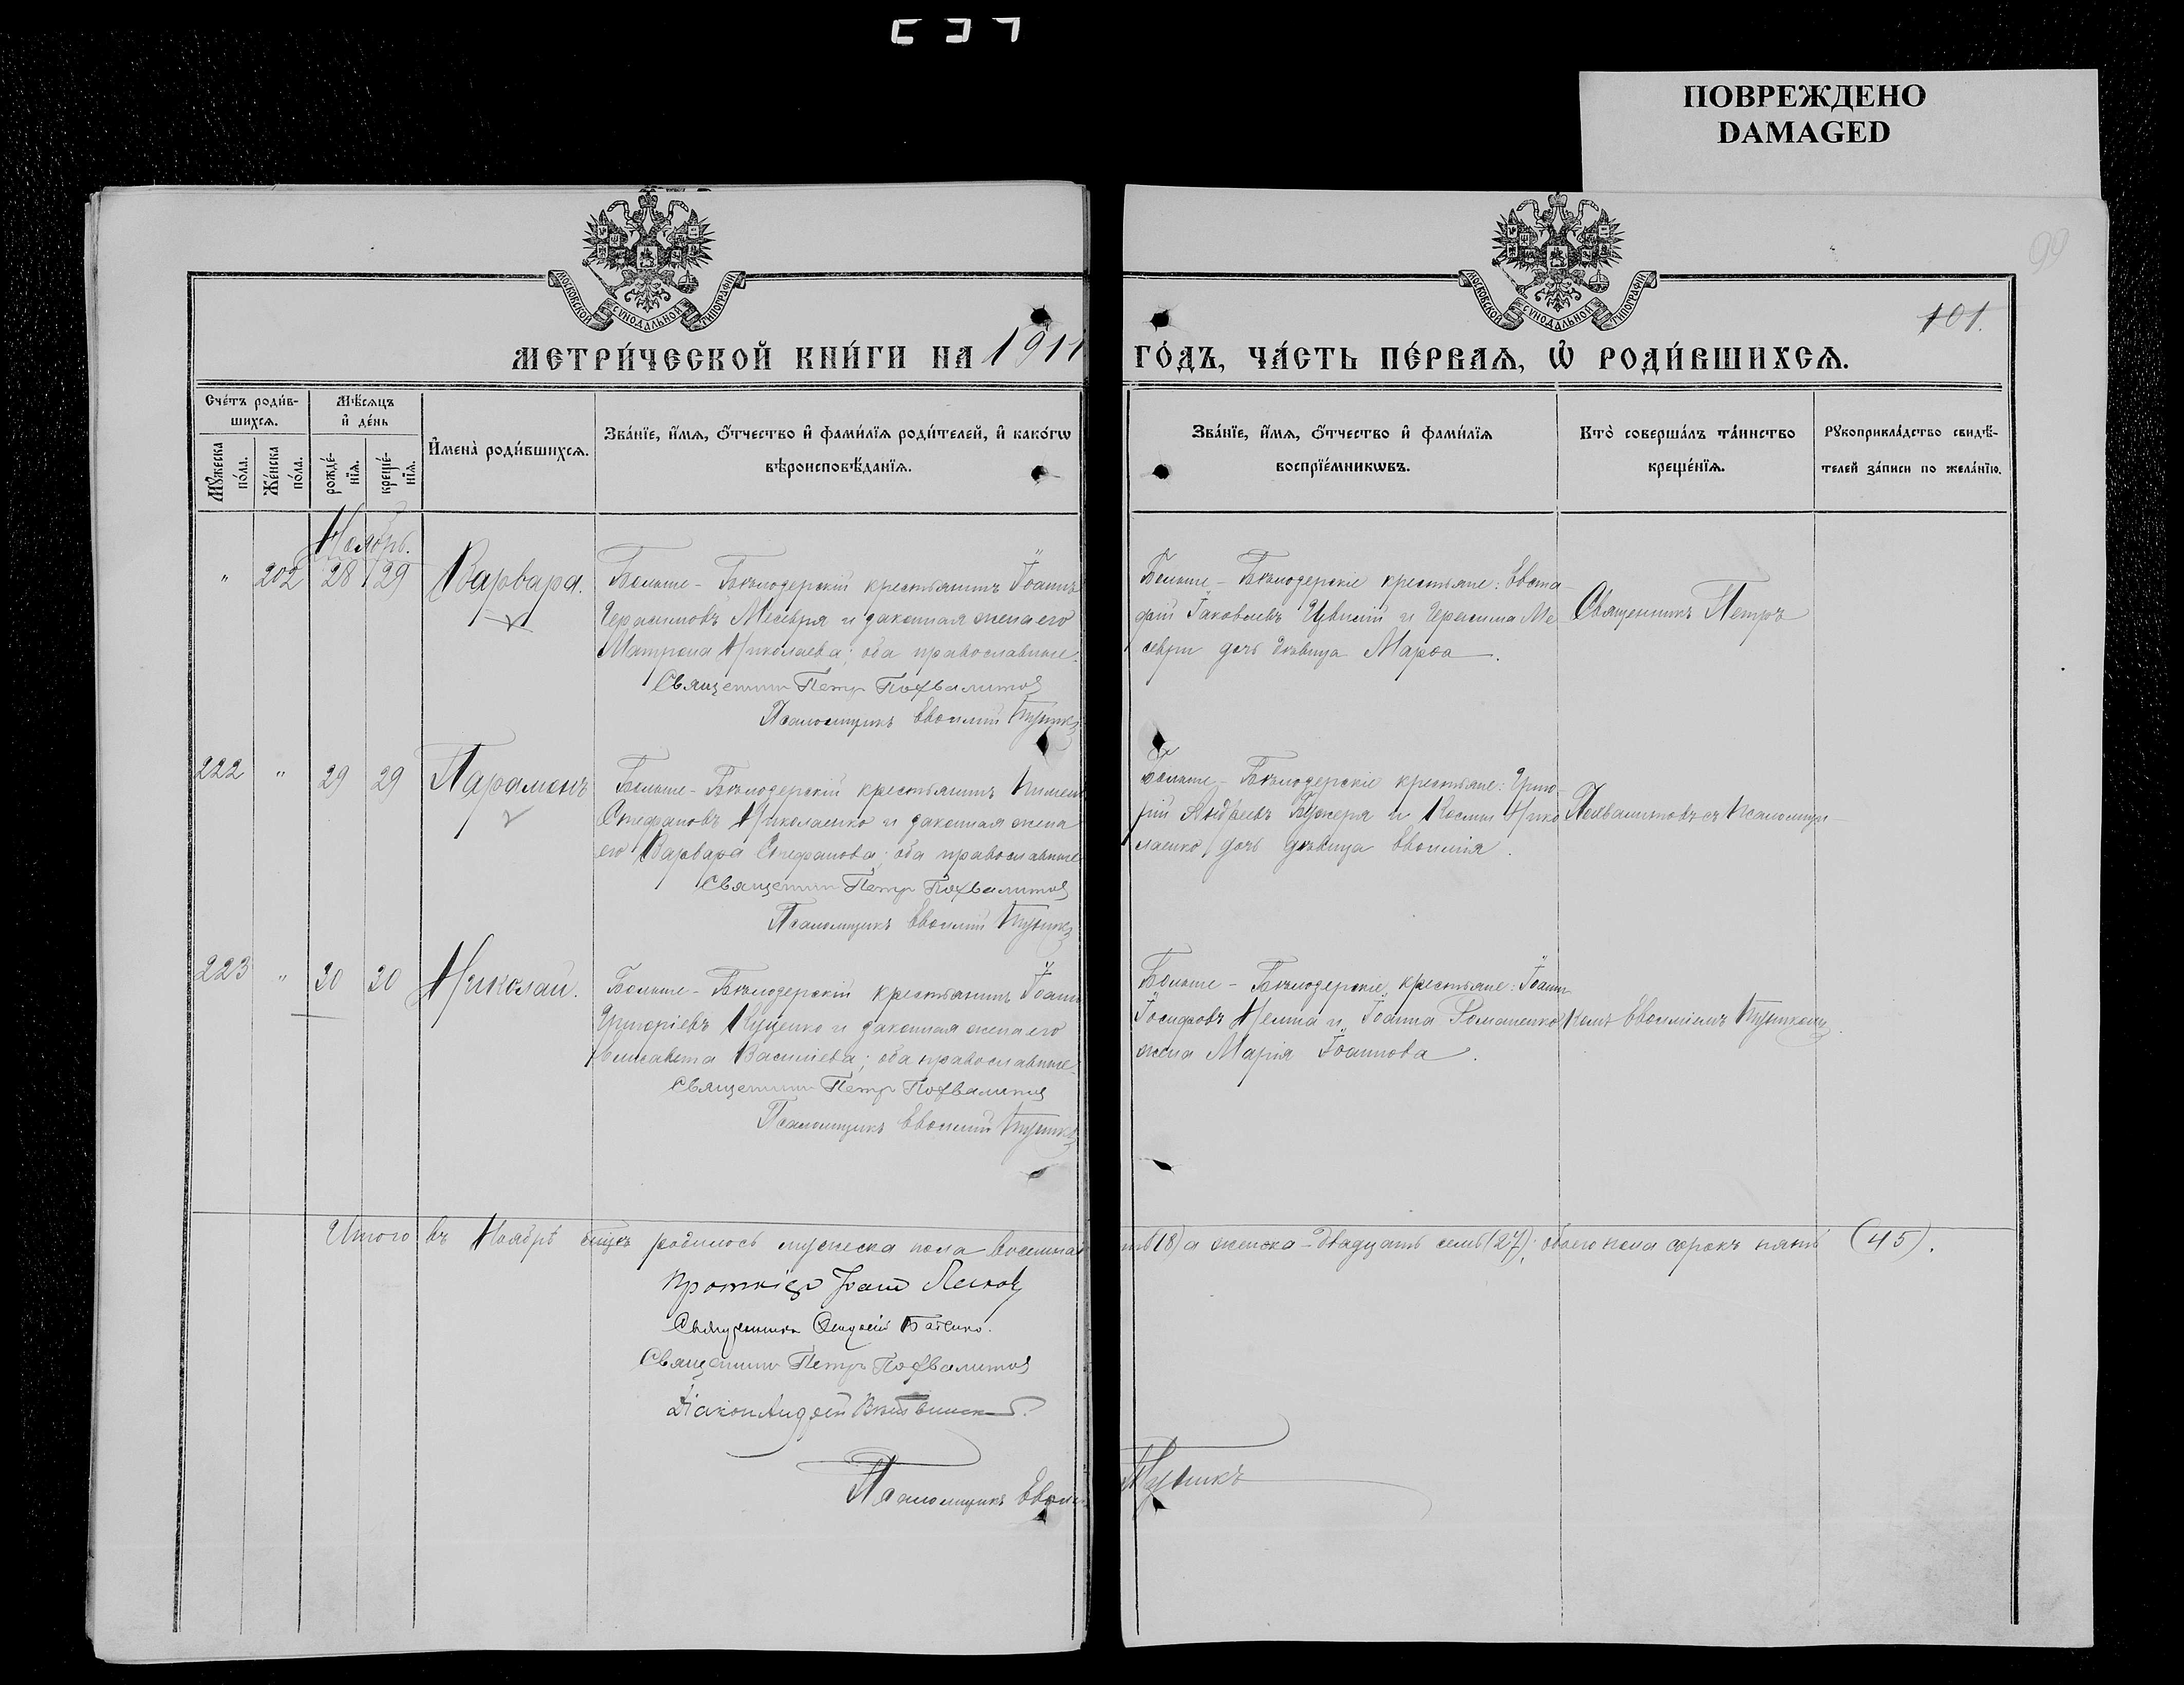 ПОВРЕЖДЕНО
DAMAGED
МОСКОВСКОЙ СѴНОДАЛЬНОЙ ТИПОГРАФІИ
МОСКОВСКОЙ СѴНОДАЛЬНОЙ ТИПОГРАФІИ
99
101.
МЕТРИ́ЧЕСКОЙ КНИ́ГИ НА 1911
ГО́ДЪ, ЧА́СТЬ ПЕ́РВАѦ, Ѡ҆ РОДИ́ВШИХСѦ.
Сче́тъ роди́в-
шихсѧ.
Мѣ́сѧцъ
и҆ де́нь
Мꙋ́жеска по́ла.
Же́нска по́ла.
рожде́-нїѧ.
креще́-нїѧ.
И҆мена̀ роди́вшихсѧ.
Зва́нїе, и҆́мѧ, ѻ҆́тчество и҆ фами́лїѧ роди́телей, и҆ како́гѡ
вѣроисповѣ́данїѧ.
Зва́нїе, и҆́мѧ, ѻ҆́тчество и҆ фами́лїѧ
воспрїе́мникѡвъ.
Кто̀ соверша́лъ та́инство
креще́нїѧ.
Рꙋкоприкла́дство свидѣ́-
телей за́писи по жела́нїю.
Ноябрь.
" 202 28 29 Варвара.
Больше-Бѣлозерскій крестьянинъ Іоаннъ
Герасимовъ Месевря и законная жена его
Матрона Николаева; оба православные.
Священникъ Петръ Похвалитовъ
Псаломщикъ Евѳимій
Больше-Бѣлозерскіе крестьяне: Евста-
фій Іаковлевъ и Герасима Ме
севри дочь дѣвица Марѳа.
Священникъ Петръ
222 " 29 29 Парамонъ
Больше-Бѣлозерскій крестьянинъ Пимен
Стефановъ Николаенко и законная жена
его Варвара Стефанова; оба православные
Священникъ Петръ Похвалитовъ
Псаломщикъ Евѳимій
Больше-Бѣлозерскіе крестьяне: Григо-
рій Андреевъ и Космы Нико
лаенко дочь дѣвица Евѳимія.
Похвалитовъ съ псаломщи-
223 " 30 30 Николай.
Больше-Бѣлозерскій крестьянинъ Іоаннъ
Григоріевъ Куценко и законная жена его
Елисавета Васильева; оба православные.
Священникъ Петръ Похвалитовъ
Псаломщикъ Евѳимій
Больше-Бѣлозерскіе крестьяне: Іоаннъ
Іосифовъ и Іоанна Романенко
жена Марія Іоаннова.
комъ Евѳиміемъ
Итого въ Ноябрѣ родилось мужеска пола восемнад
ть (18) а женска-двадцать семь (27); обоего пола сорокъ пять (45).
Протоіерей Іоаннъ
Священникъ
Священникъ Петръ Похвалитовъ
Діаконъ Андрей
Псаломщикъ Евѳим